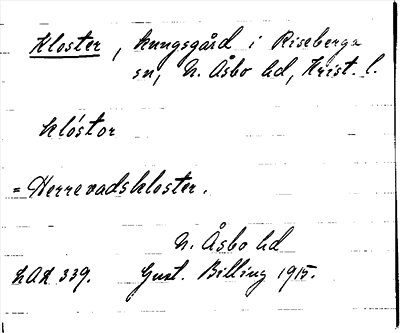 Kloster, kungsgård i Riseberga
sn, N. Åsbo hd, Krist. l.
klóstor
= Herrevadskloster.
N. Åsbo hd
LAX 339. Gust. Billing 1915.